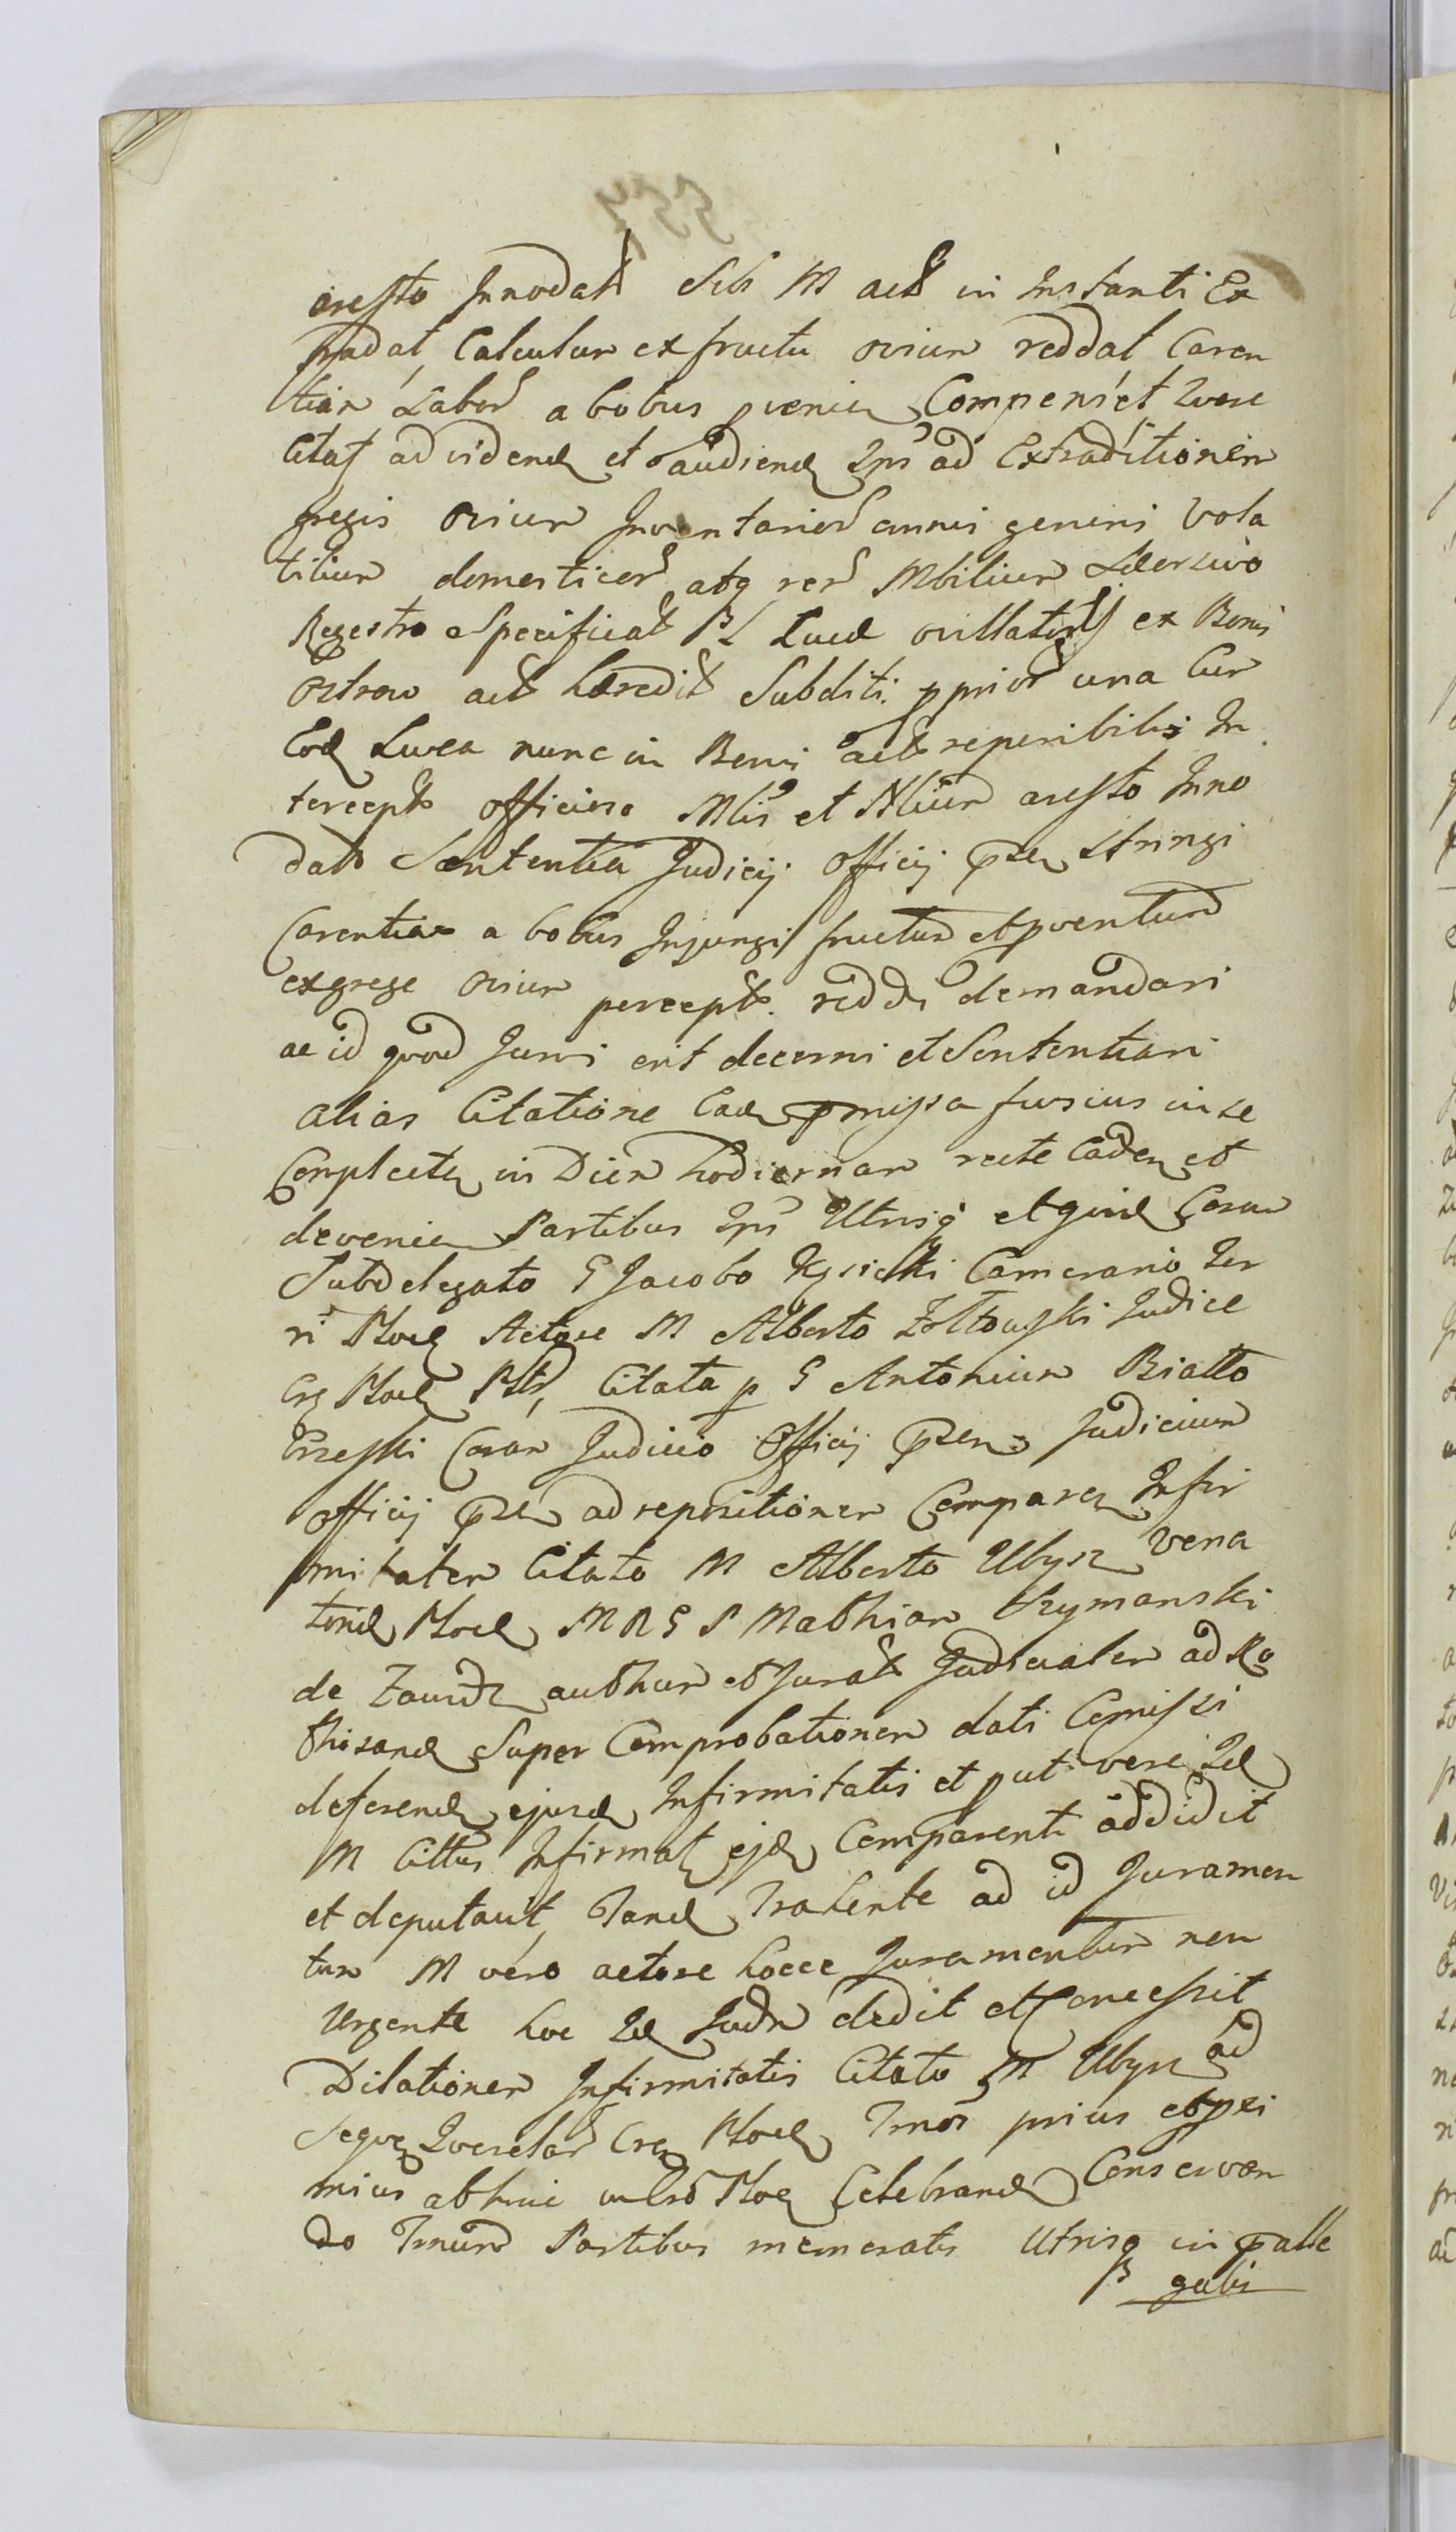 aresto Innodat Sibi M act in Instanti Ex
tradat, Calculum ex fructu ovium reddat Caren
tiam Labor a bobus pvenien Compenset Quare
Citat ad vidend et audiend Ips ad Extraditionem
gregis ovium Inventarior omnis generis vola
tilium domesticor atq rer Mbilium
Regestro Specificat Luca ex Bonis
Ostrow act haeredit Subditi pprior una Cum
Eod Luca nunc in Bonis act reperibilis In
tercept officiose Mlis et Nlium aresto Inno
dato Sententia Judicij Officij pzen stringi
Carentias a bobus Injungi fructum et pventum
ex grege ovium percept. reddi demandari
ac id quod Juris erit decerni et Sententiari
alias Citatione Ead pmissa fusius in se
Complecten in Diem hodiernam recte Caden et
devenien Partibus Ips Utrisq et quid Coram
Subdelegato G Jacobo Camerario Ter
ri Ploc Actore M Alberto Zołtowski Judice
Crz Ploc Citata p G Antonium Biało
brzeski Coram Judicio Officij pzen Judicium
Officij pzen ad repositionem Comparen Infir
mitatem Citato M Alberto Ubysz vena
torid Ploc M R G P Mathiam Szymanski
de authum et Jurat Judicialem ad Ro
thisand Super Comprobationem dati Comissi
deferend ejusd Infirmitatis et p ut vere Id
M Cittus Infirmat ejd Comparenti addidit
et deputavit, Tand Tralente ad id Juramen
tum M vero actore hocce Juramentum non
Urgente hoc Id Judm dedit et Concessit
Dilationem Infirmitatis Citato M Ubysz ad
Sequen Querelar Crz Ploc Tmos prius et pxi
mius abhinc Ploc Celebrand Conservan
do Tmum Partibus memoratis Utrisq in palle
gatis